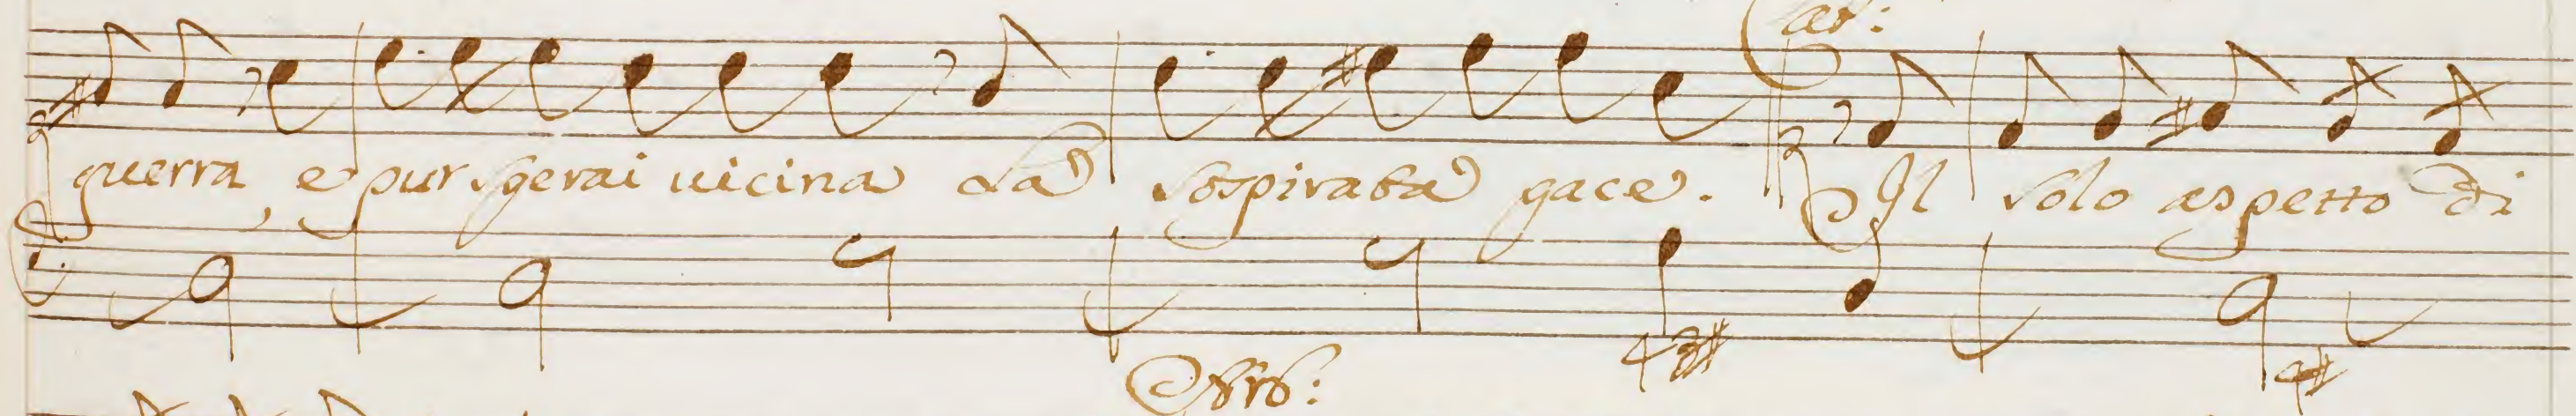 at:
guerra, e pur sperai uicina La sospirata pace. Il solo aspetto di
4 3#
4#